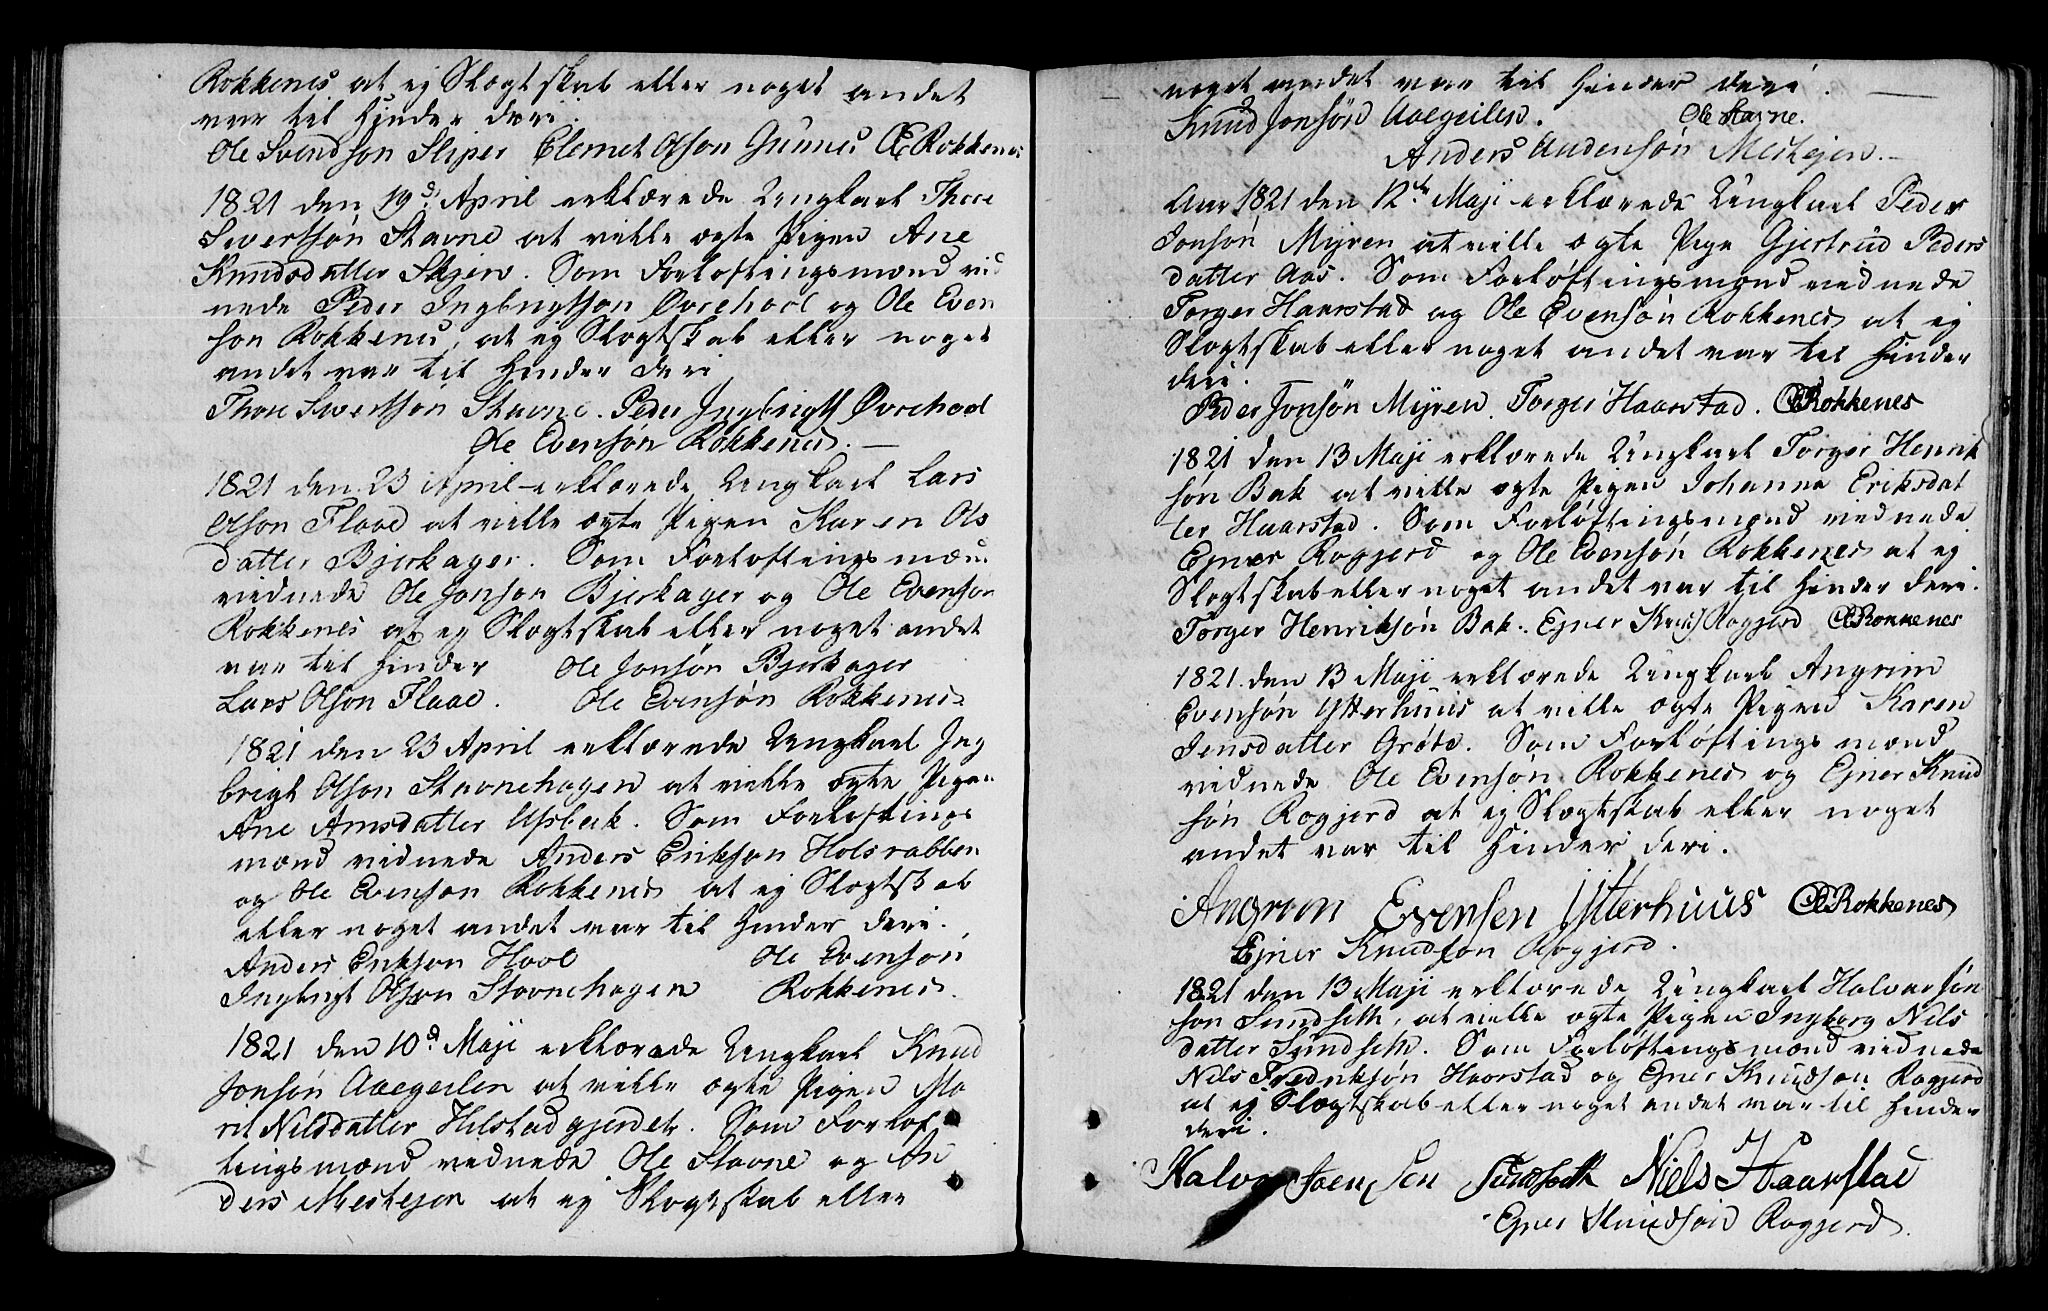 Rokkenes at ej Slægtskab eller noget andet
var til Hinder deri.
Ole Svendson Sliper Clemet Olson Gunnes OE Rokkenes
1821 den 19d April erklærede Ungkarl Thore
Sivertsøn Stavne at ville ægte Pigen Ane
Knudsdatter Skjen. Som Forløftningsmænd vid
nede Peder Ingbrigtson Øvrehoel og Ole Even
son Rokkenes, at ej Slægtskab eller noget
andet var til Hinder deri
Thore Sivertsøn Stavne. Peder Ingbrigts Øvrehoel
Ole Evensøn Rokkenes. —
1821 den 23 April erklærede Ungkarl Lars
Olson Flaae at ville ægte Pigen Karen Ols
datter Bjerkager. Som Forløftningsmæn
vidnede Ole Jonson Bjerkager og Ole Evenson
Rokkenes at ej Slægtskab eller noget andet
var til Hinder Ole Jonsøn Bjerkager
Lars Olson Flaae. Ole Evensøn Rokkenes
1821 den 23 April erklærede Ungkarl Ing
brigt Olson Stavnehagen at ville ægte Pigen
Ane Arnsdatter Usbek. Som Forløftnings
mænd vidnede Anders Erikson Holsrabben
og Ole Evenson Rokkenes at ej Slægtskab
eller noget andet var til Hinder deri.
Anders Erikson Hool Ole Evensøn
Ingbrigt Olson Stavnehagen Rokkenes.
1821 den 10d Maji erklærede Ungkarl Knud
Jonsøn Aaegeilen at ville ægte Pigen Ma
rit Nilsdatter Hilstadgjerdet. Som Forløf
tingsmænd vidnede Ole Stavne og An
ders Meslejen at ej Slægtskab eller
noget andet var til Hinder deri. —
Knud Jonsøn Aaegeilen. Ole Stavne.
Anders Andersøn Meslejen. —
Aar 1821 den 12te Maji erklærede Ungkarl Peder
Jonsøn Myren at ville ægte Pige Gjertrud Peders
datter Aas. Som Forløftingsmænd vidnede
Torger Haarstad og Ole Evensøn Rokkenes at ej
Slægtskab eller noget andet var til Hinder
deri.
Peder Jonsøn Myren. Torger Haarstad. OE Rokkenes
1821 den 13 Maji erklærede Ungkarl Torger Henrik
søn Bak at ville ægte Pigen Johanna Eriksdat
ter Haarstad. Som Forløftingsmænd vidnede
Ejner Rogjerd og Ole Evensøn Rokkenes at ej
Slægtskab eller noget andet var til Hinder deri.
Torger Henriksøn Bak. Ejner Knuds Rogjerd OE Rokkenes
1821 den 13 Maji erklærede Ungkarl Angrim
Evensøn Ytterhuus at ville ægte Pigen Karen
Jensdatter Grøte. Som Forløftingsmænd
vidnede Ole Evensøn Rokkenes og Ejner Knud
søn Rogjerd at ej Slægtskab eller noget
andet var til Hinder deri.
Angrim Evensen Ytterhuus OE Rokkenes
Ejner Knudsøn Rogjerd.
1821 den 13 Maji erklærede Ungkarl Halvor Jøn
son Sundseth, at ville ægte Pigen Ingborg Nils
datter Sundseth. Som Forløftingsmænd vidnede
Nils Fredriksøn Haarstad og Ejner Knudson Rogjerd
at ej Slægtskab eller noget andet var til Hinder
deri.
Halvor Joensen Sundseth Niels Haarstad
Ejner Knudsøn Rogjerd.